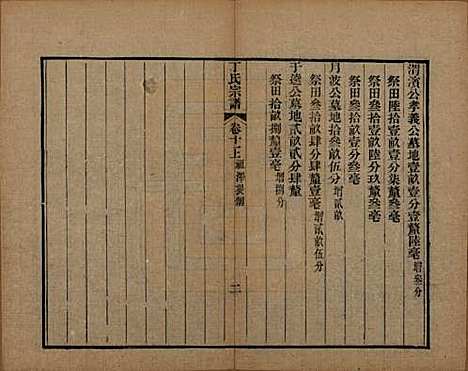 渭濱公孝義公墓地壹畝壹分壹釐陸毫增叁分
祭田陸拾壹畝壹分柒釐叁毫
祭田叁拾壹畝陸分玖釐叁毫
祭田叁拾畝壹分叁毫
月波公墓地拾叁畝伍分
祭田叁拾畝肆分肆釐壹毫增貳畝伍分
于逵公墓地貳畝貳分肆釐
祭田拾畝捌釐壹毫增捌分
丁氏宗譜
卷十上
二